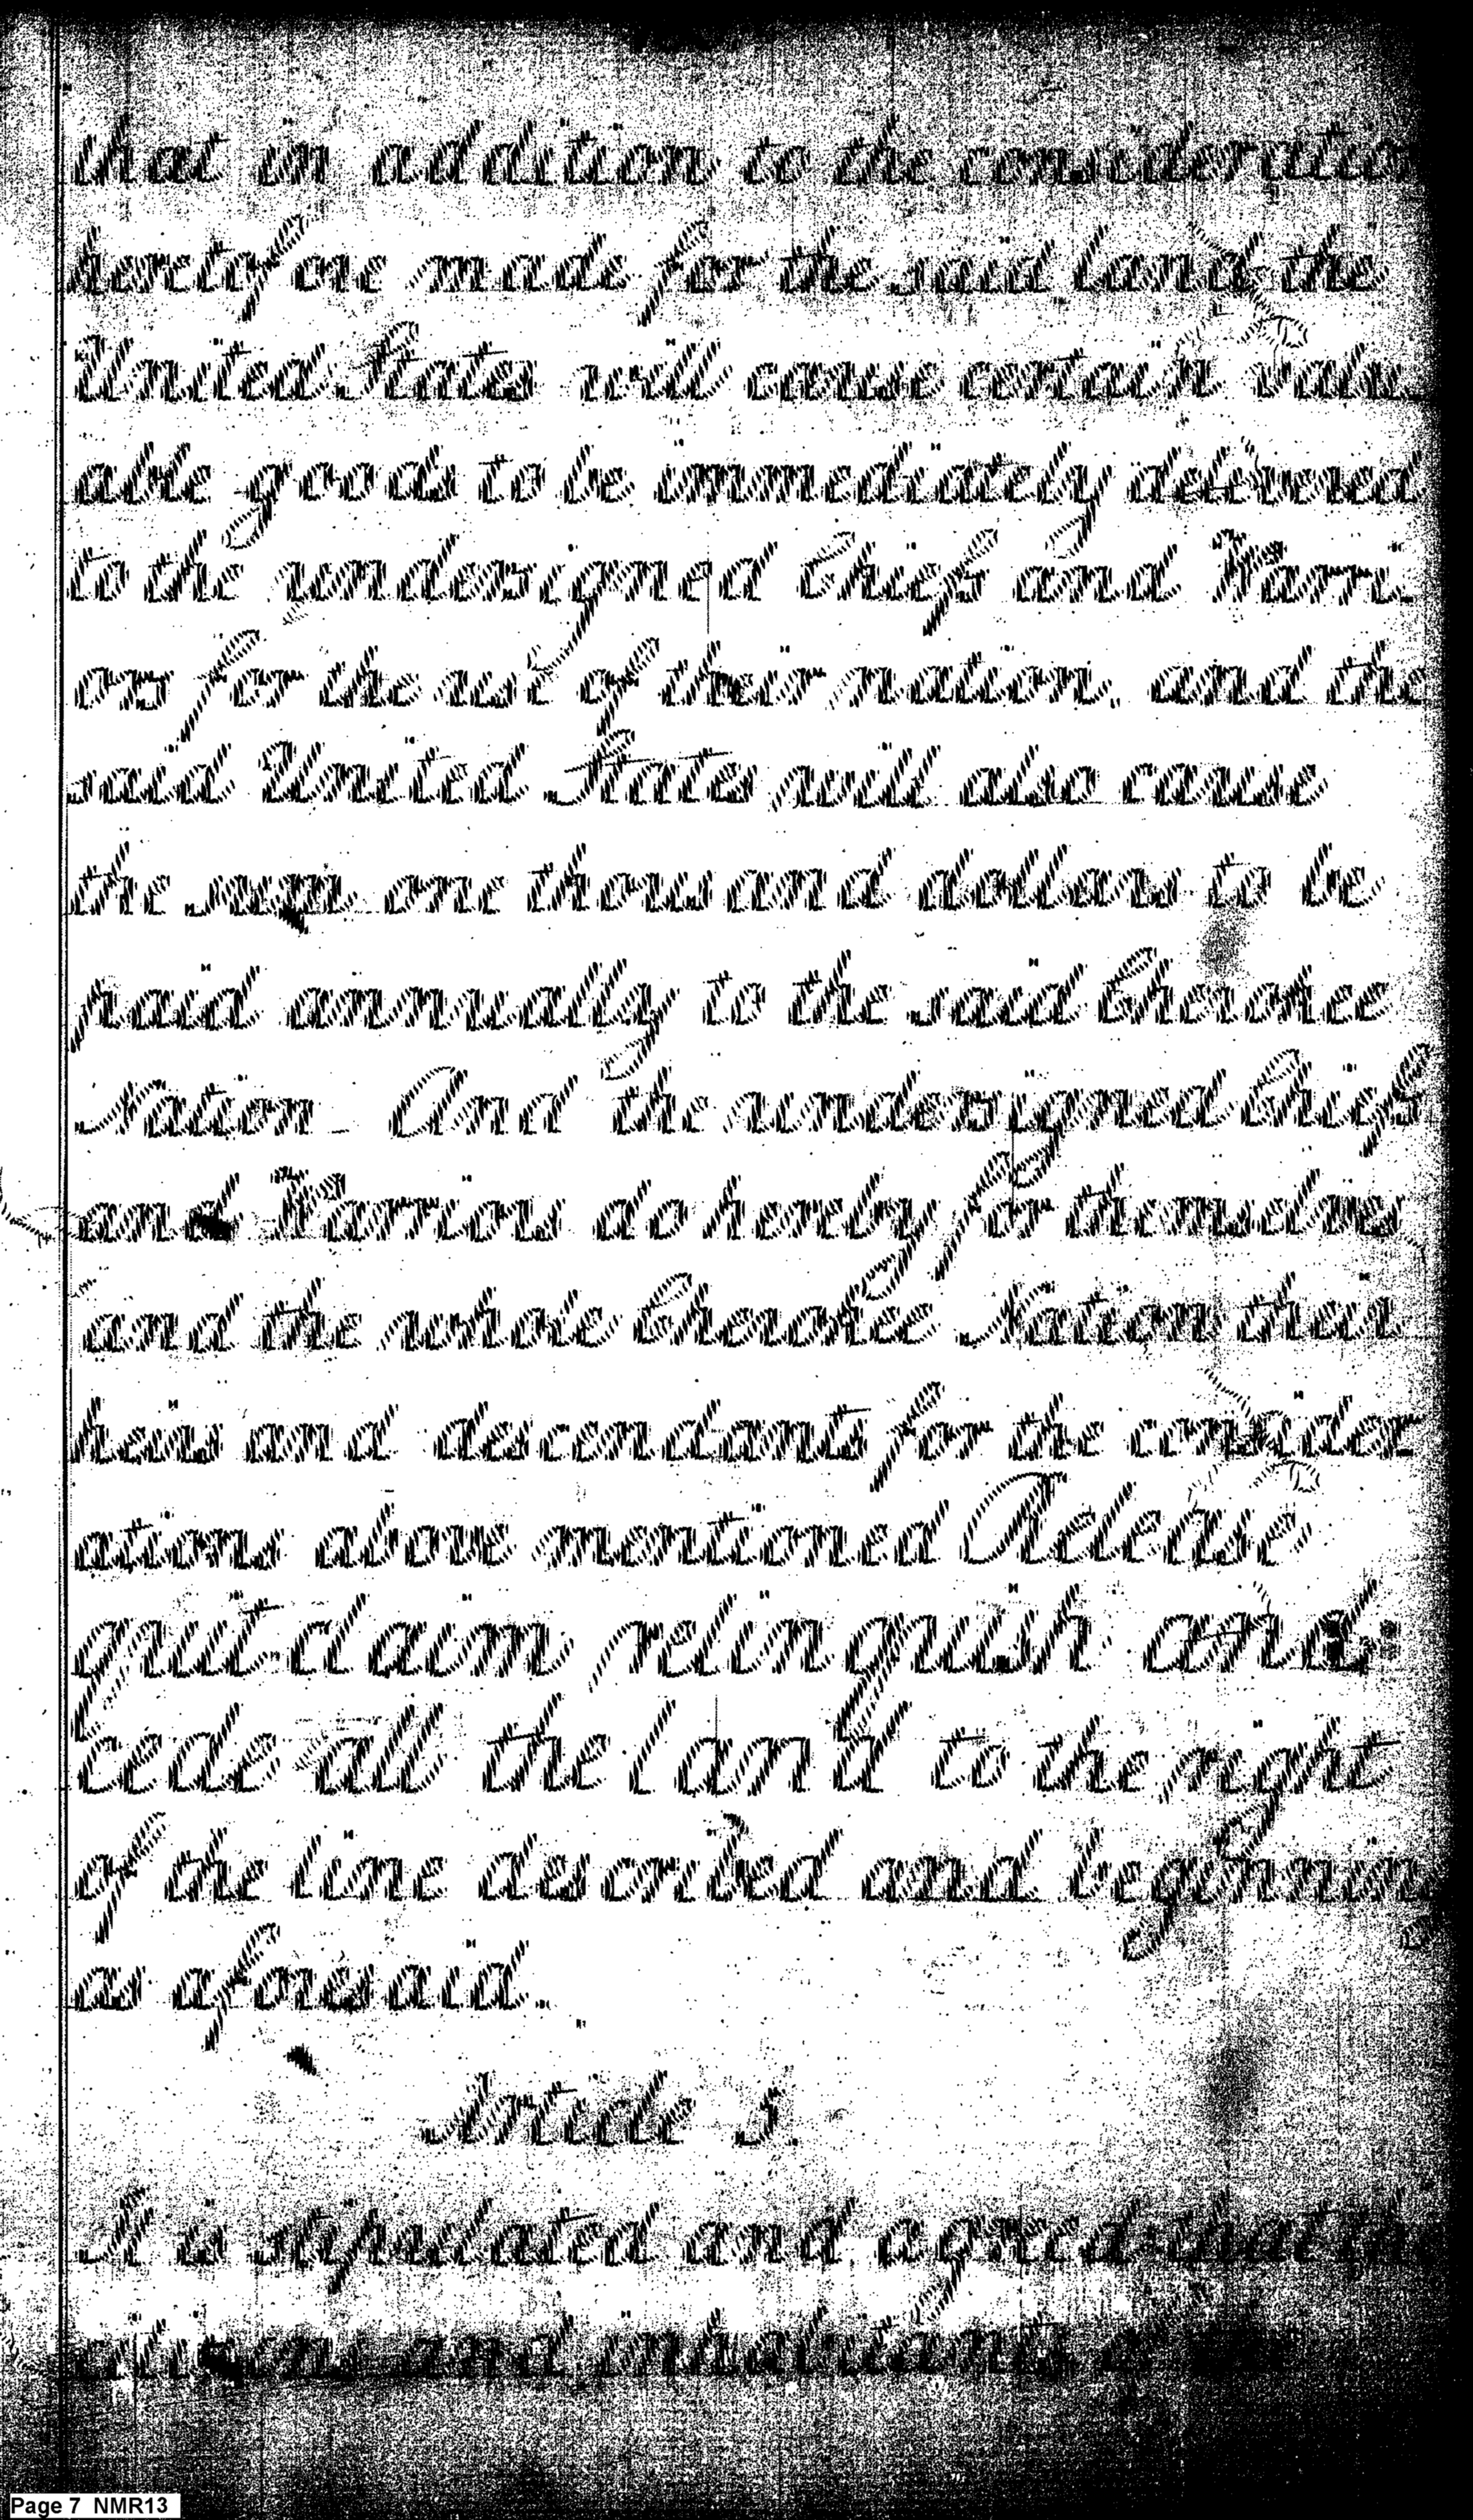 that in addition to the consideration
heretofore made for the said land the
United States will cause certain valu
able goods to be immediately delivered
to the undersigned Chiefs and Warri
ors for the use of their nation, and the
said United States will also cause
the sum one thousand dollars to be
paid annually to the said Cherokee
Nation - And the undersigned Chiefs
and Warriors do hereby for themselves
and the whole Cherokee Nation their
heirs and descendants for the consider
ations above mentioned Release
quit-claim relinquish and
cede all the land to the right
of the line described and beginning
as aforesaid.
Article 5.
It is stipulated and agreed that the
citizens and inhabitants of
Page 7 NMR13